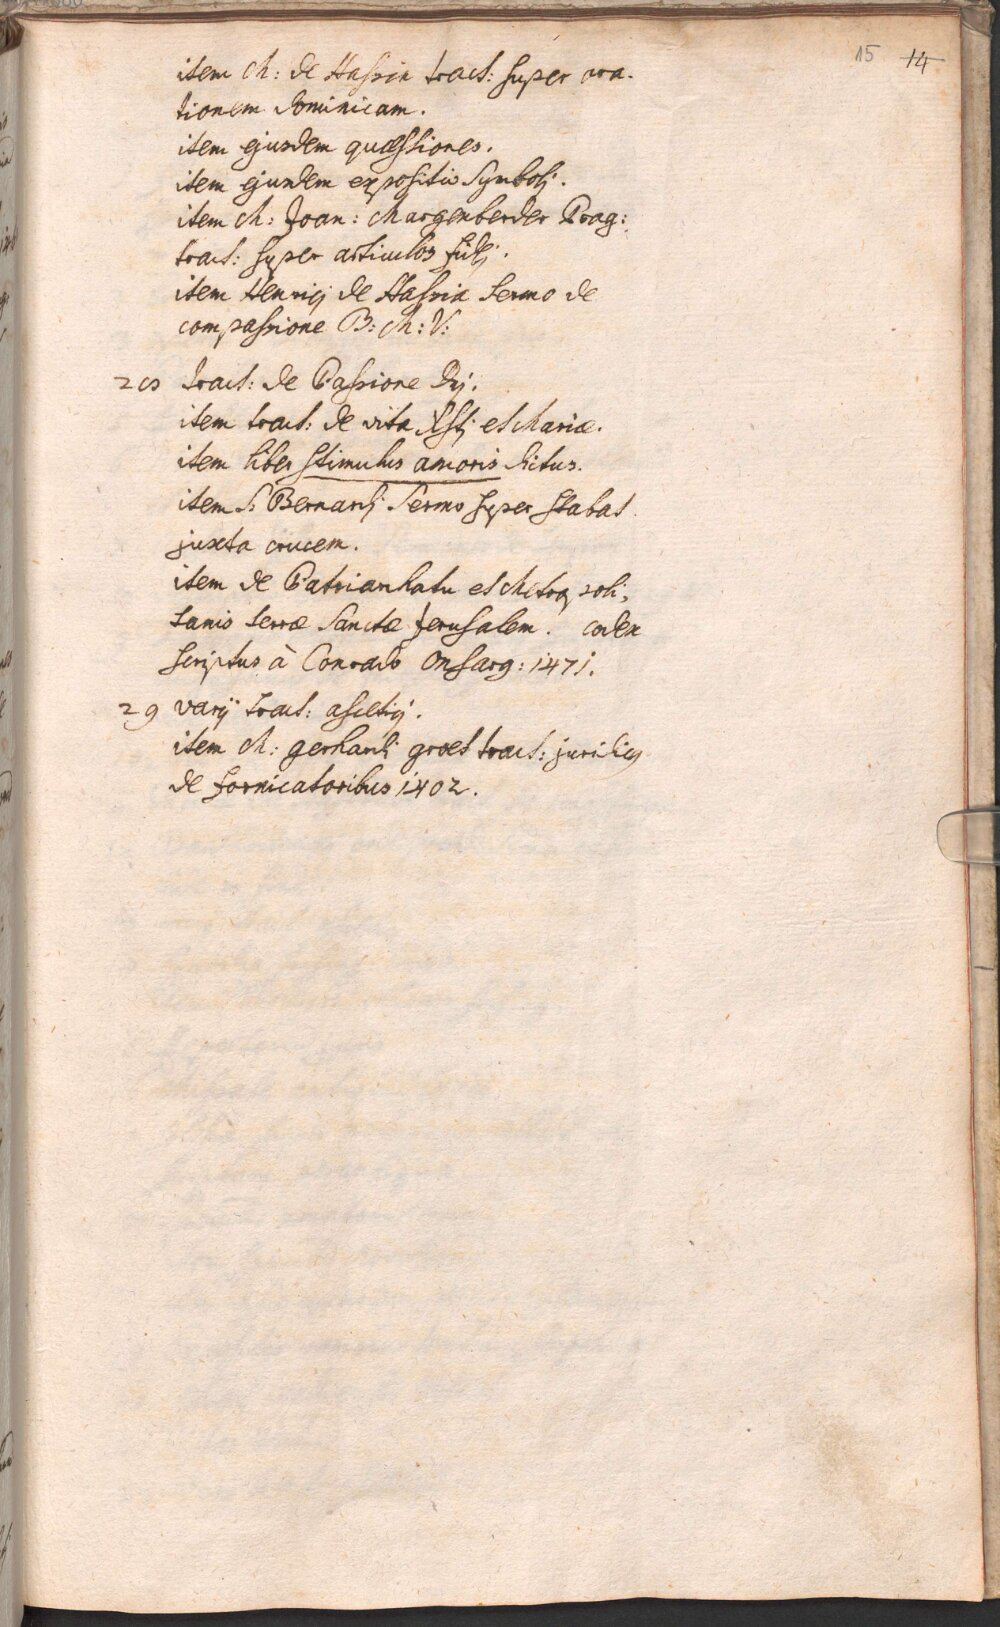 15 14
item M: de Hassia tract: super ora-
tionem Dominicam.
item ejusdem quæstiones.
item ejusdem expositio Symbolj.
item M: Joan: Margenberder Prag:
tract: super articulos fidej.
item Henricj de Hassia Sermo de
compassione B: M: V:
28 tract: de Passione Dnj.
item tract: de vita Xstj et Mariæ.
item liber stimulus amoris dictus.
item S: Bernardj Sermo super stabat
juxta crucem.
item de Patriarchatu et Metropoli-
tanis terræ Sanctæ Jerusalem. codex
scriptus à Conrado Onsarg: 1471.
29 varij tract: ascetici.
item M: gerhardi groet tract: juridicus
de fornicatoribus 1402.